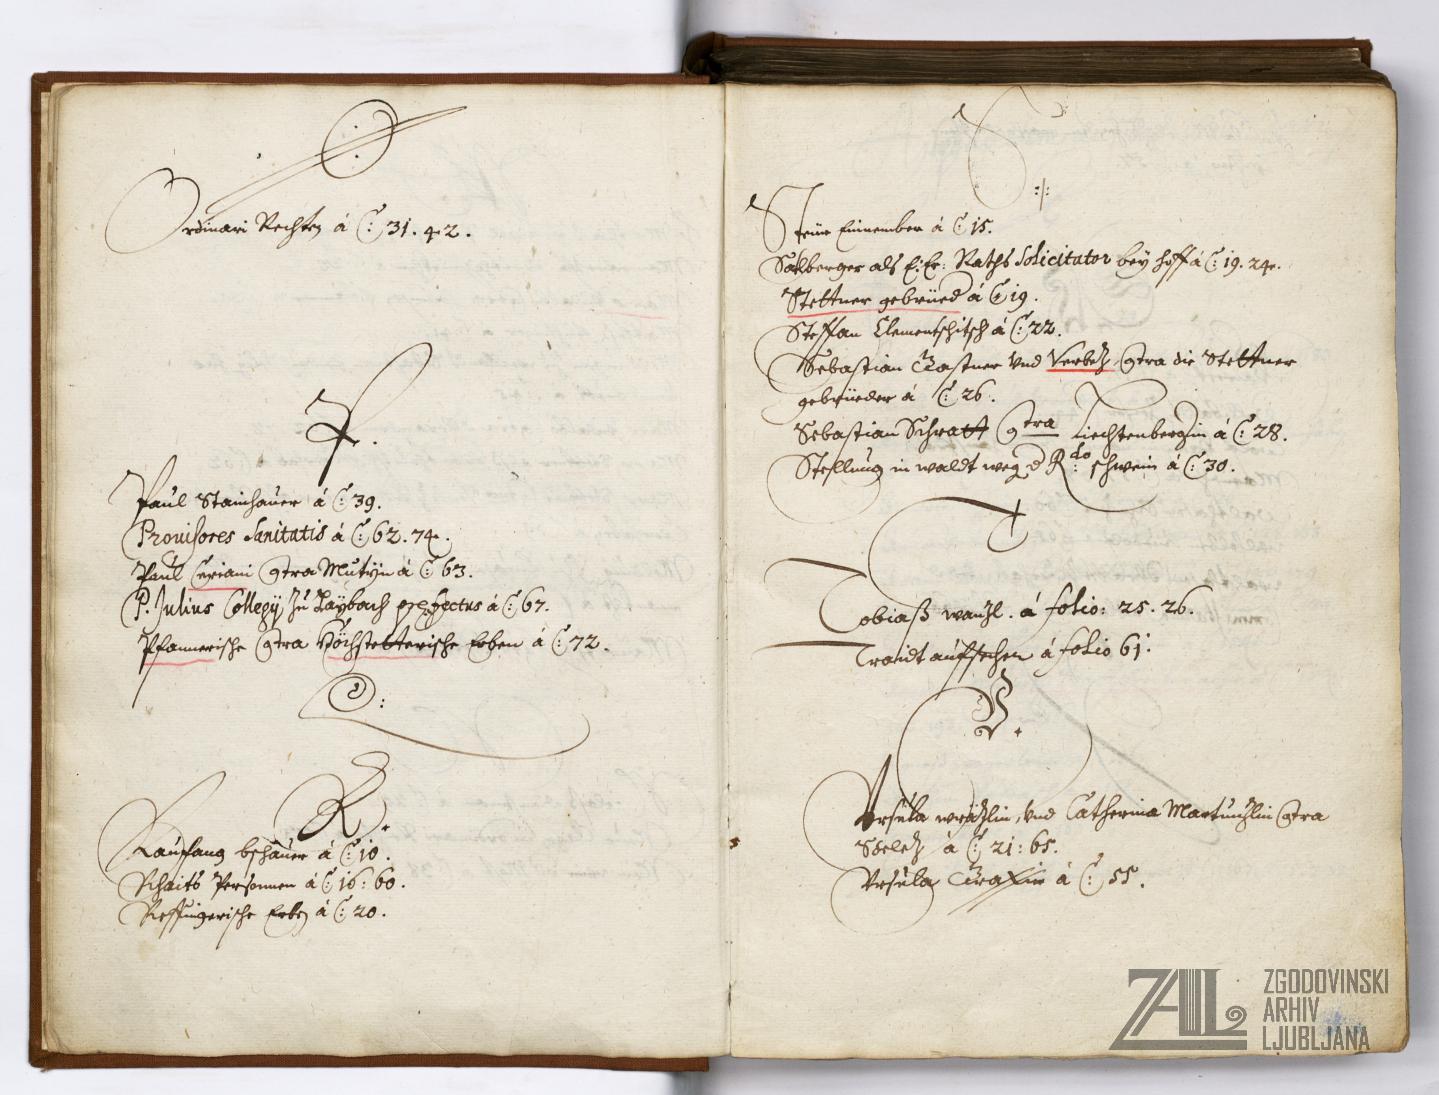 O.
Ordinari Rechten á C: 31. 42.
P.
Paul Stainhauer á C: 39.
Prouisores Sanitatis á C: 62. 74.
Paul Ceriani gtra Mutÿn á C: 63.
P. Julius Collegÿ zu Laÿbach præfectus á C: 67.
Pfannerische gtra Höchstetterische Erben á C: 72.
Q:
R.
Raufang bschauer á C: 10.
Raits Personnen á C: 16: 60.
Reffingerische Erben á C: 20.
S
Steür Einnember á C: 15.
als E: Er: Raths Solicitator beÿ hoff á C: 19. 24.
Stettner gebrüed á C: 19.
Steffan Clementschitsch á C: 22.
Sebastian Castner vnd Verbez gtra die Stettner
gebrüeder á C: 26.
Sebastian Schratt gtra Liechtenbergin á C: 28.
Stellung in waldt weg d Rdo: schwein á C: 30.
T
Tobiaß wanzl. á folio: 25. 26.
Traidt auffseher á folio 61.
V.
Vrsula vnd Catherina Martunzlin gtra
á C: 21: 65.
Vrsula á C: 55.
ZAL ZGODOVINSKI
ARHIV
LJUBLJANA